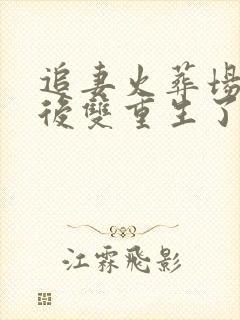 追妻火葬場
後雙重生了
江霖飛影